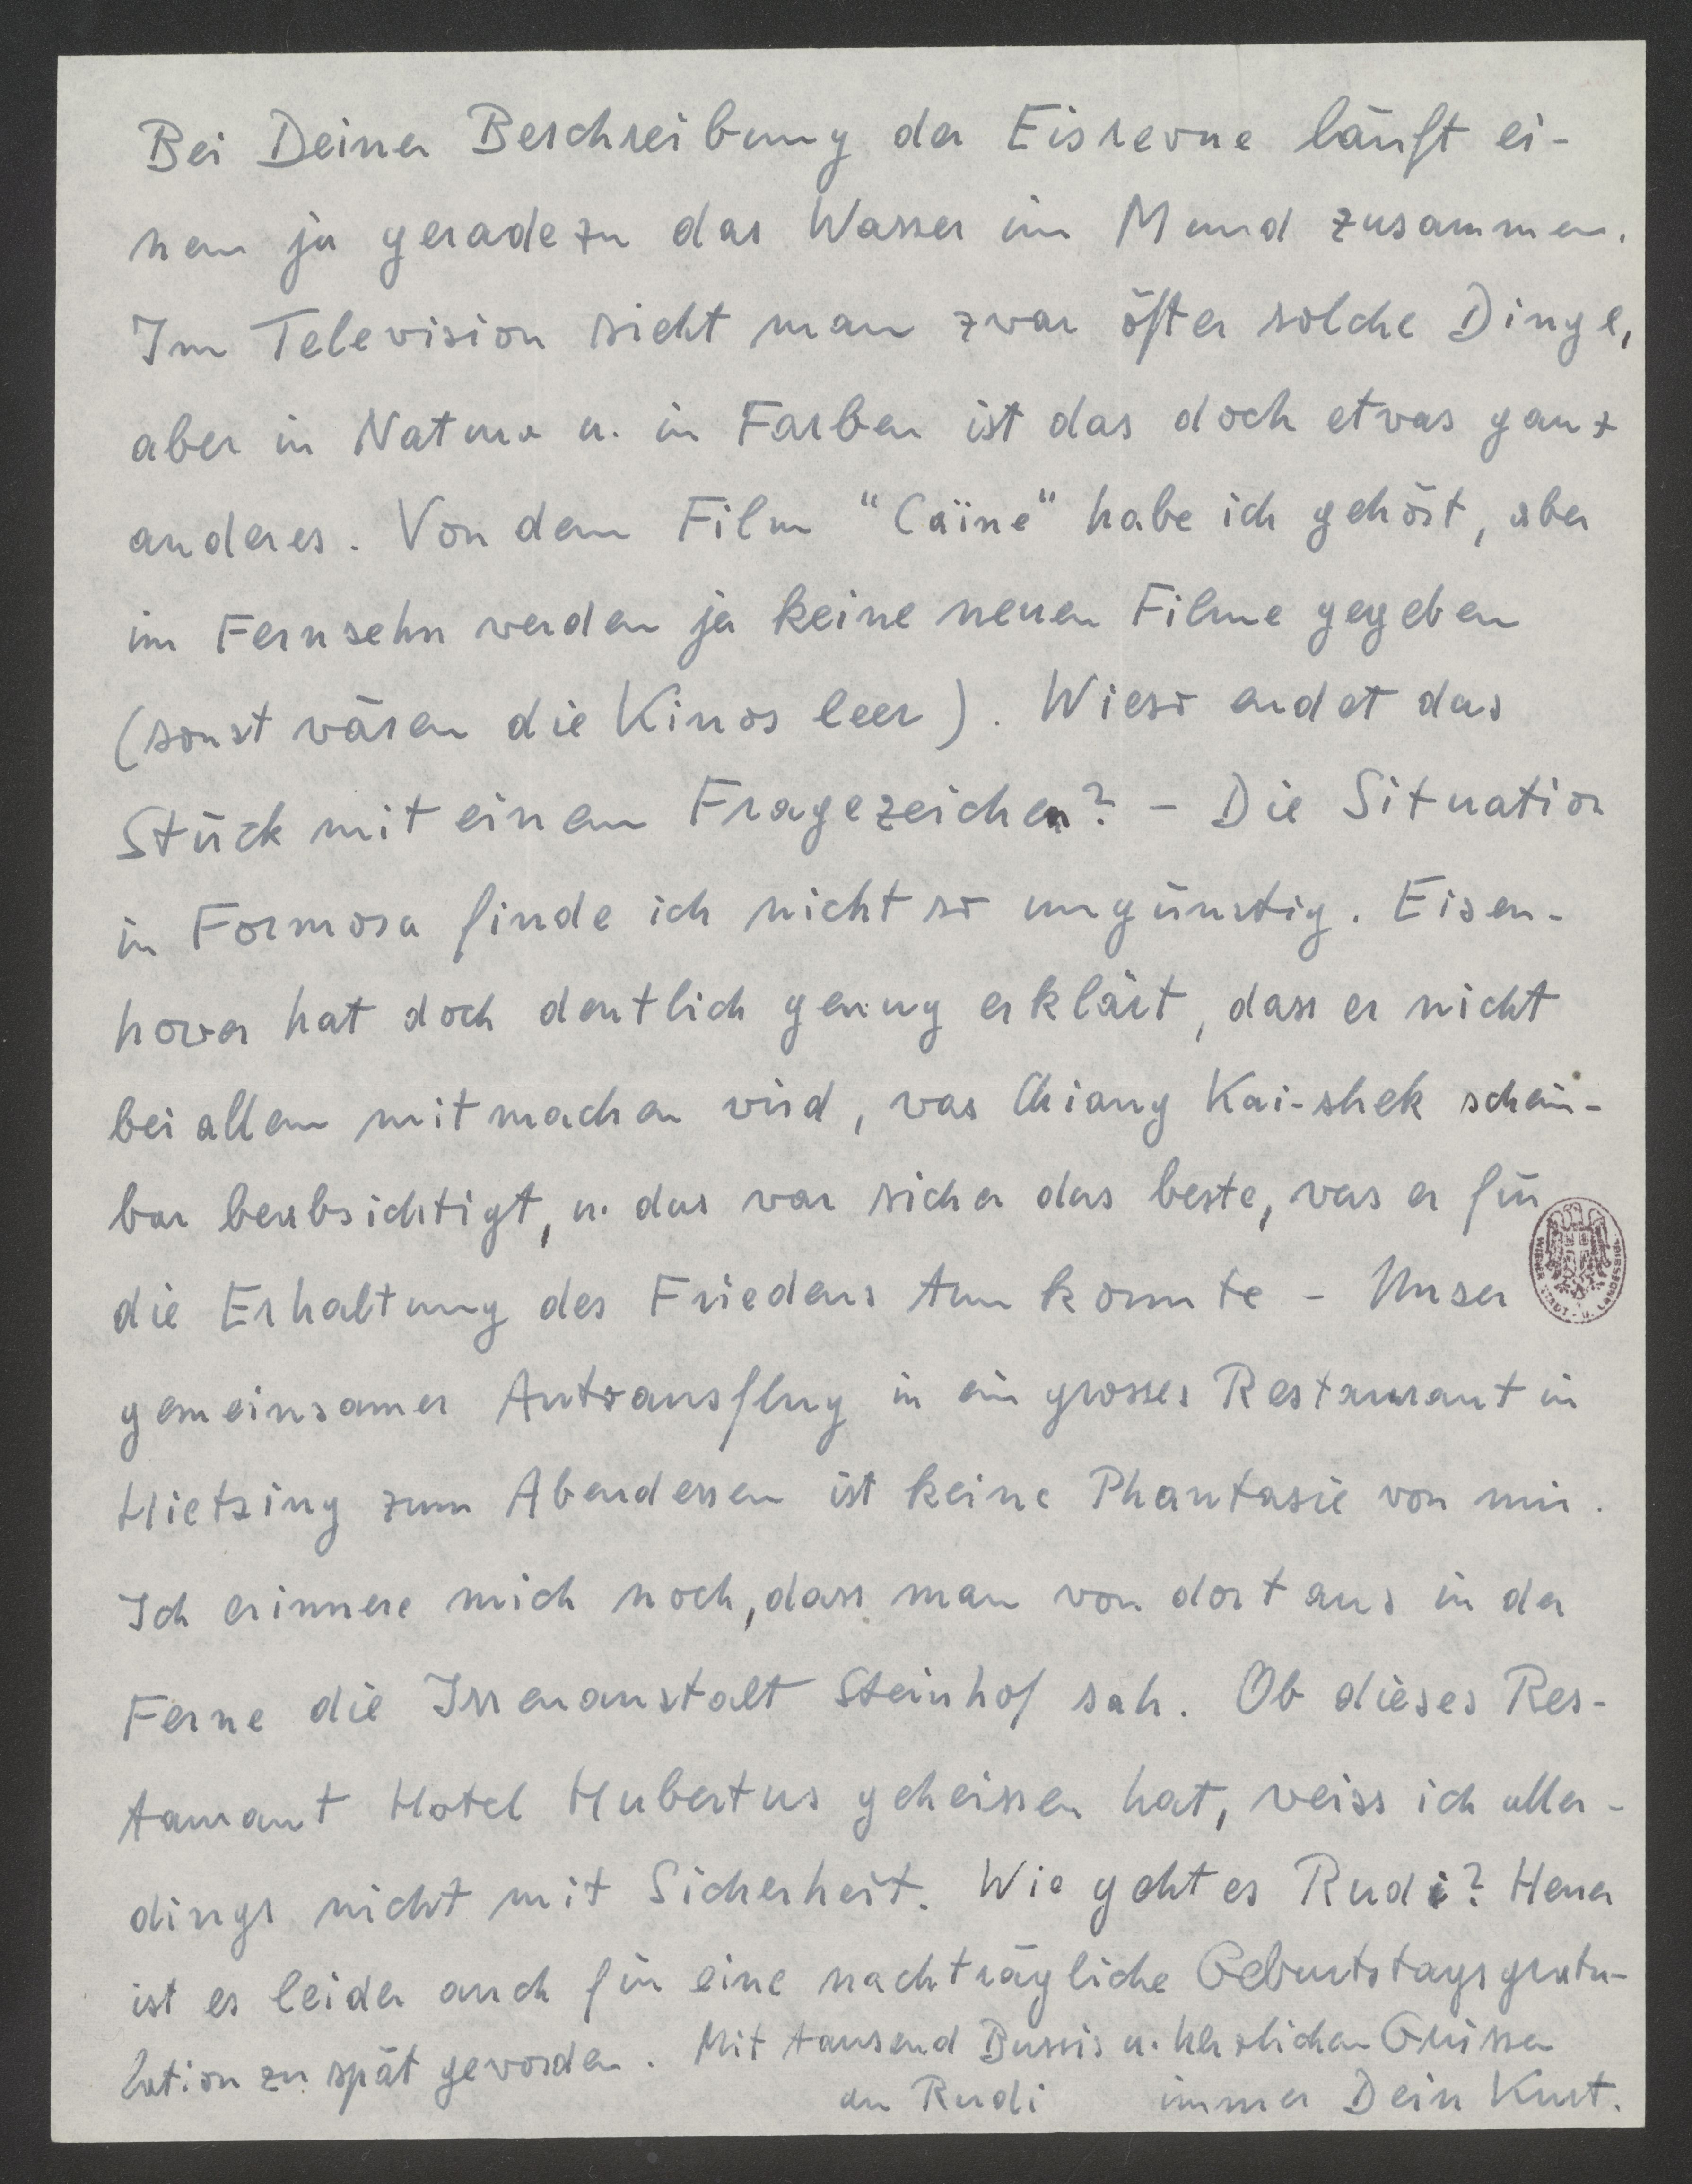 Bei Deiner Beschreibung der Eisrevue läuft ei-
nem ja geradezu das Wasser im Mund zusammen.
Im Television sieht man zwar öfter solche Dinge,
aber in Natura u. in Farben ist das doch etwas ganz
anderes. Von dem Film "Caïne" habe ich gehört, aber
im Fernsehn werden ja keine neuen Filme gegeben
(sonst wären die Kinos leer). Wieso endet das
Stück mit einem Fragezeichen? – Die Situation
in Formosa finde ich nicht so ungünstig. Eisen-
hover hat doch deutlich genug erklärt, dass er nicht
bei allem mitmachen wird, was Chiang Kai-shek schein-
bar beabsichtigt, u. das war sicher das beste, was er für
die Erhaltung des Friedens tun konnte – Unser
gemeinsamer Autoausflug in ein grosses Restaurant in
Hietzing zum Abendessen ist keine Phantasie von mir.
Ich erinnere mich noch, dass man von dort aus in der
Ferne die Irrenanstalt Steinhof sah. Ob dieses Res-
taurant Hotel Hubertus geheissen hat, weiss ich aller-
dings nicht mit Sicherheit. Wie geht es Rudi? Heuer
ist es leider auch für eine nachträgliche Geburtstagsgratu-
lation zu spät geworden. Mit tausend Bussis u. herzlichen Grüssen
an Rudi immer Dein Kurt.